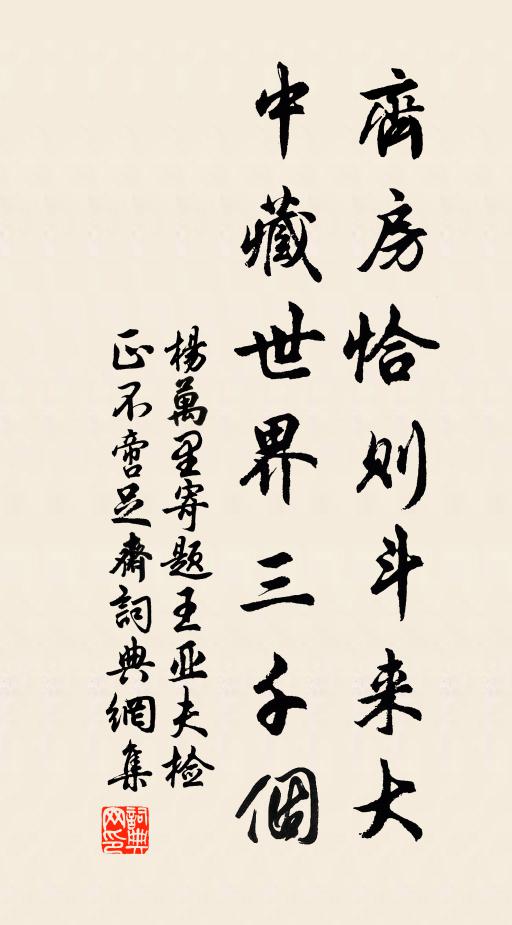 齋房恰则斗来大
中藏世界三千個
楊萬里寄题王亚夫检
正不啻足齋詞典網集
詞典网印